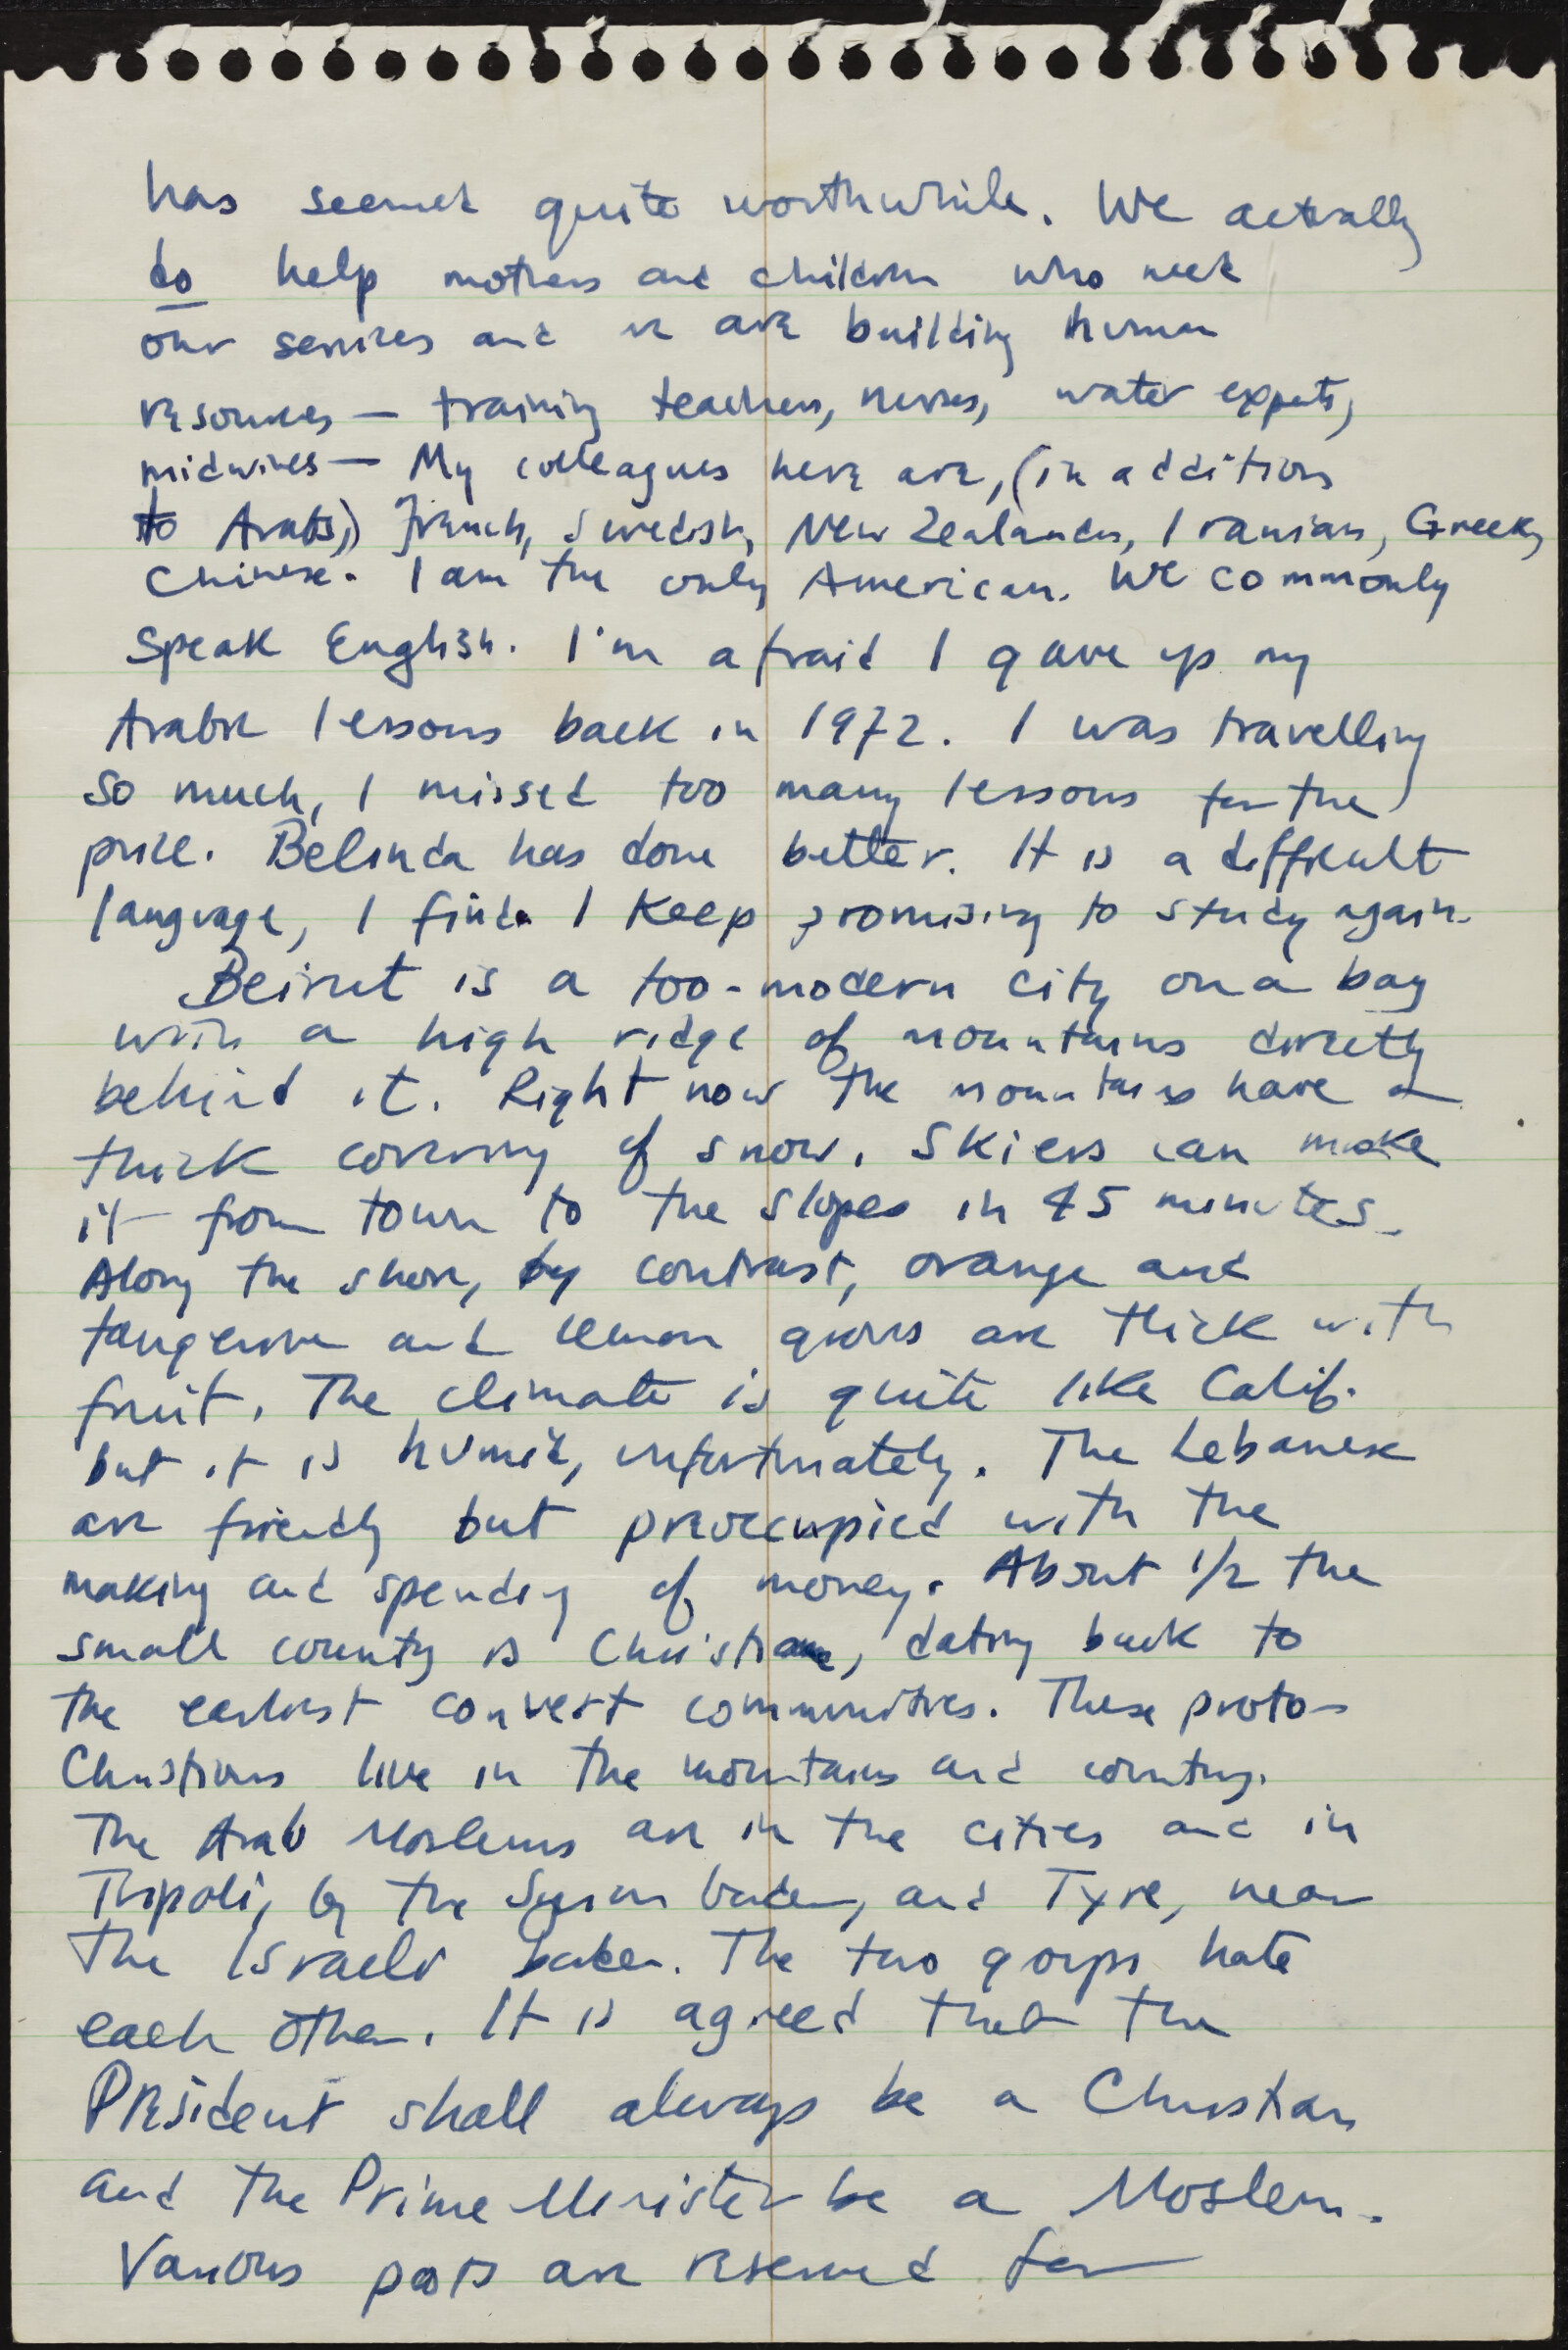 has seemed quite worthwhile. We actually
do help mothers and children who need
our services and we are building human
resources — training teachers, nurses, water experts,
midwives — My colleagues here are, (in addition
to Arabs,) French, Swedish, New Zealander, Iranian, Greek,
Chinese. I am the only American. We commonly
speak English. I'm afraid I gave up my
Arabic lessons back in 1972. I was travelling
so much, I missed too many lessons for the
price. Belinda has done better. It is a difficult
language, I find. I keep promising to study again.
Beirut is a too-modern city on a bay
with a high ridge of mountains directly
behind it. Right now the mountains have a
thick covering of snow. Skiers can make
it from town to the slopes in 45 minutes.
Along the shore, by contrast, orange and
tangerine and lemon groves are thick with
fruit. The climate is quite like Calif.
but it is humid, unfortunately. The Lebanese
are friendly but preoccupied with the
making and spending of money. About 1/2 the
small country is Christian, dating back to
the earliest convert communities. These proto-
Christians live in the mountains and country.
The Arab Moslems are in the cities and in
Tripoli, by the Syrian border, and Tyre, near
the Israeli border. The two groups hate
each other. It is agreed that the
President shall always be a Christian
and the Prime Minister be a Moslem.
Various posts are reserved for